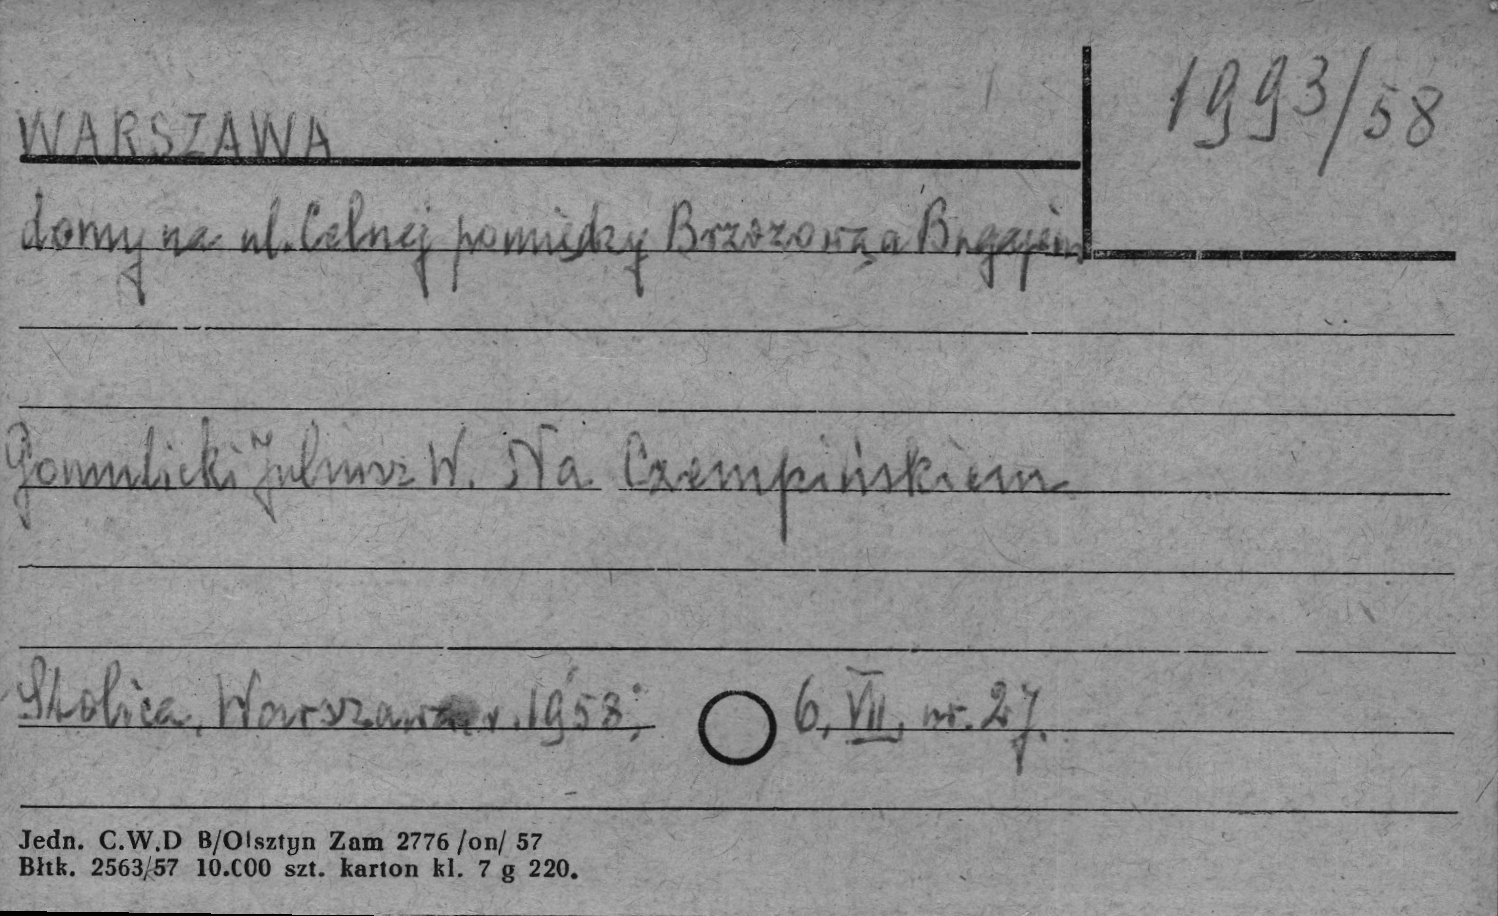 WARSZAWA
1993/58
domy na ul. Celnej pomiędzy Brzozową a Bugajem
Gomulicki Juliusz W. Na Czempińskiem
Stolica, Warszawa r. 1958; 6. VII, nr. 27.
Jedn. C.W.D B/Olsztyn Zam 2776 /on/ 57
Błtk. 2563/57 10.000 szt. karton kl. 7 g 220.